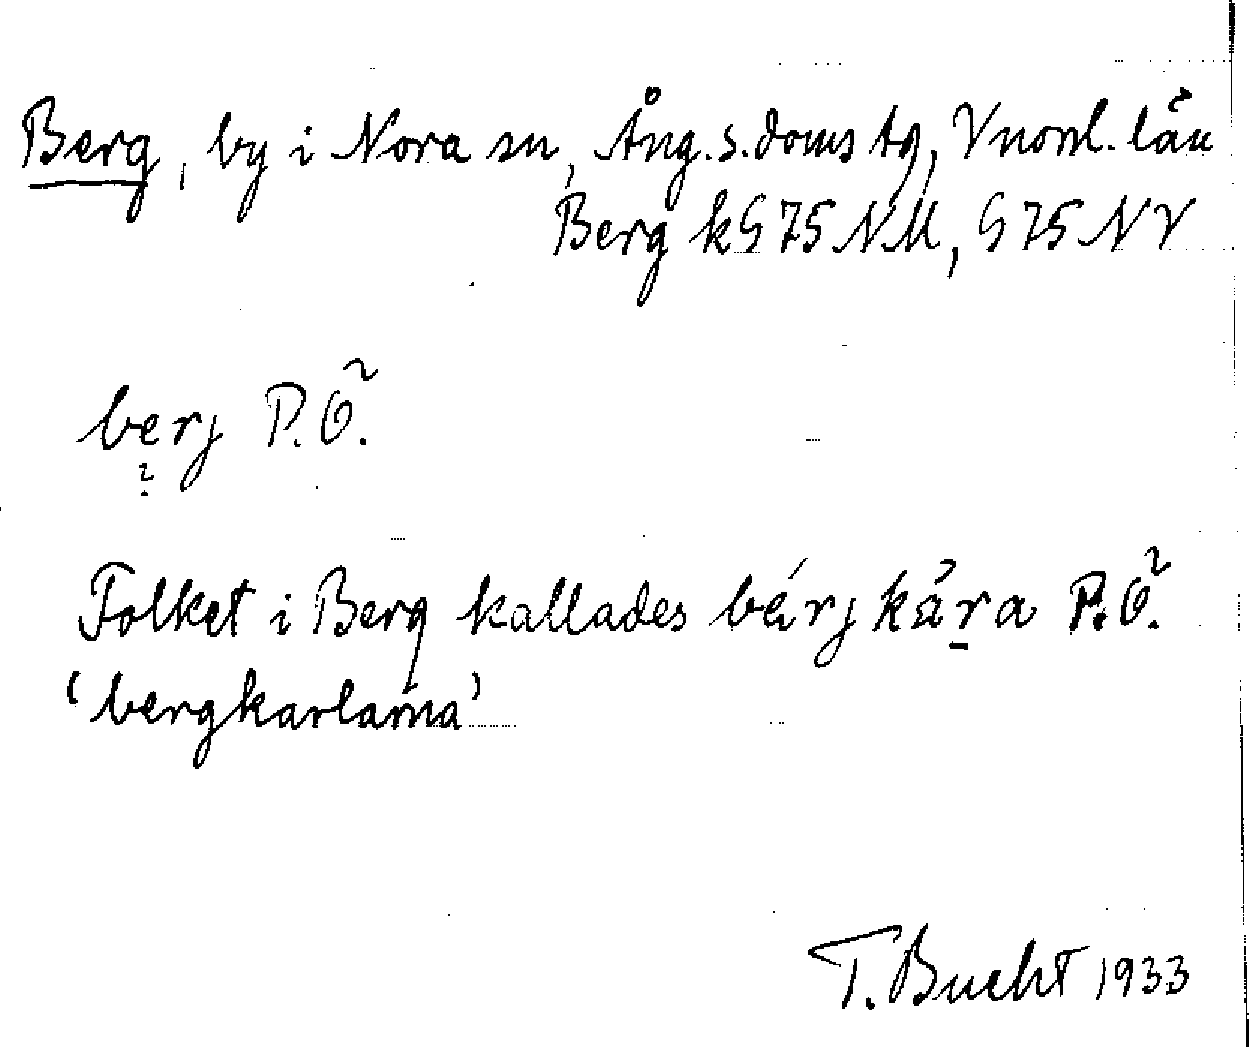 Berg, by i Nora sn, Ång. s. doms tg, Vnorrl. län
Berg k G 75 NM, G 75 NV
berj P.Ö.
Folket i Berg kallades bérjkára P.Ö.
'bergkarlarna'
T. Bucht 1933